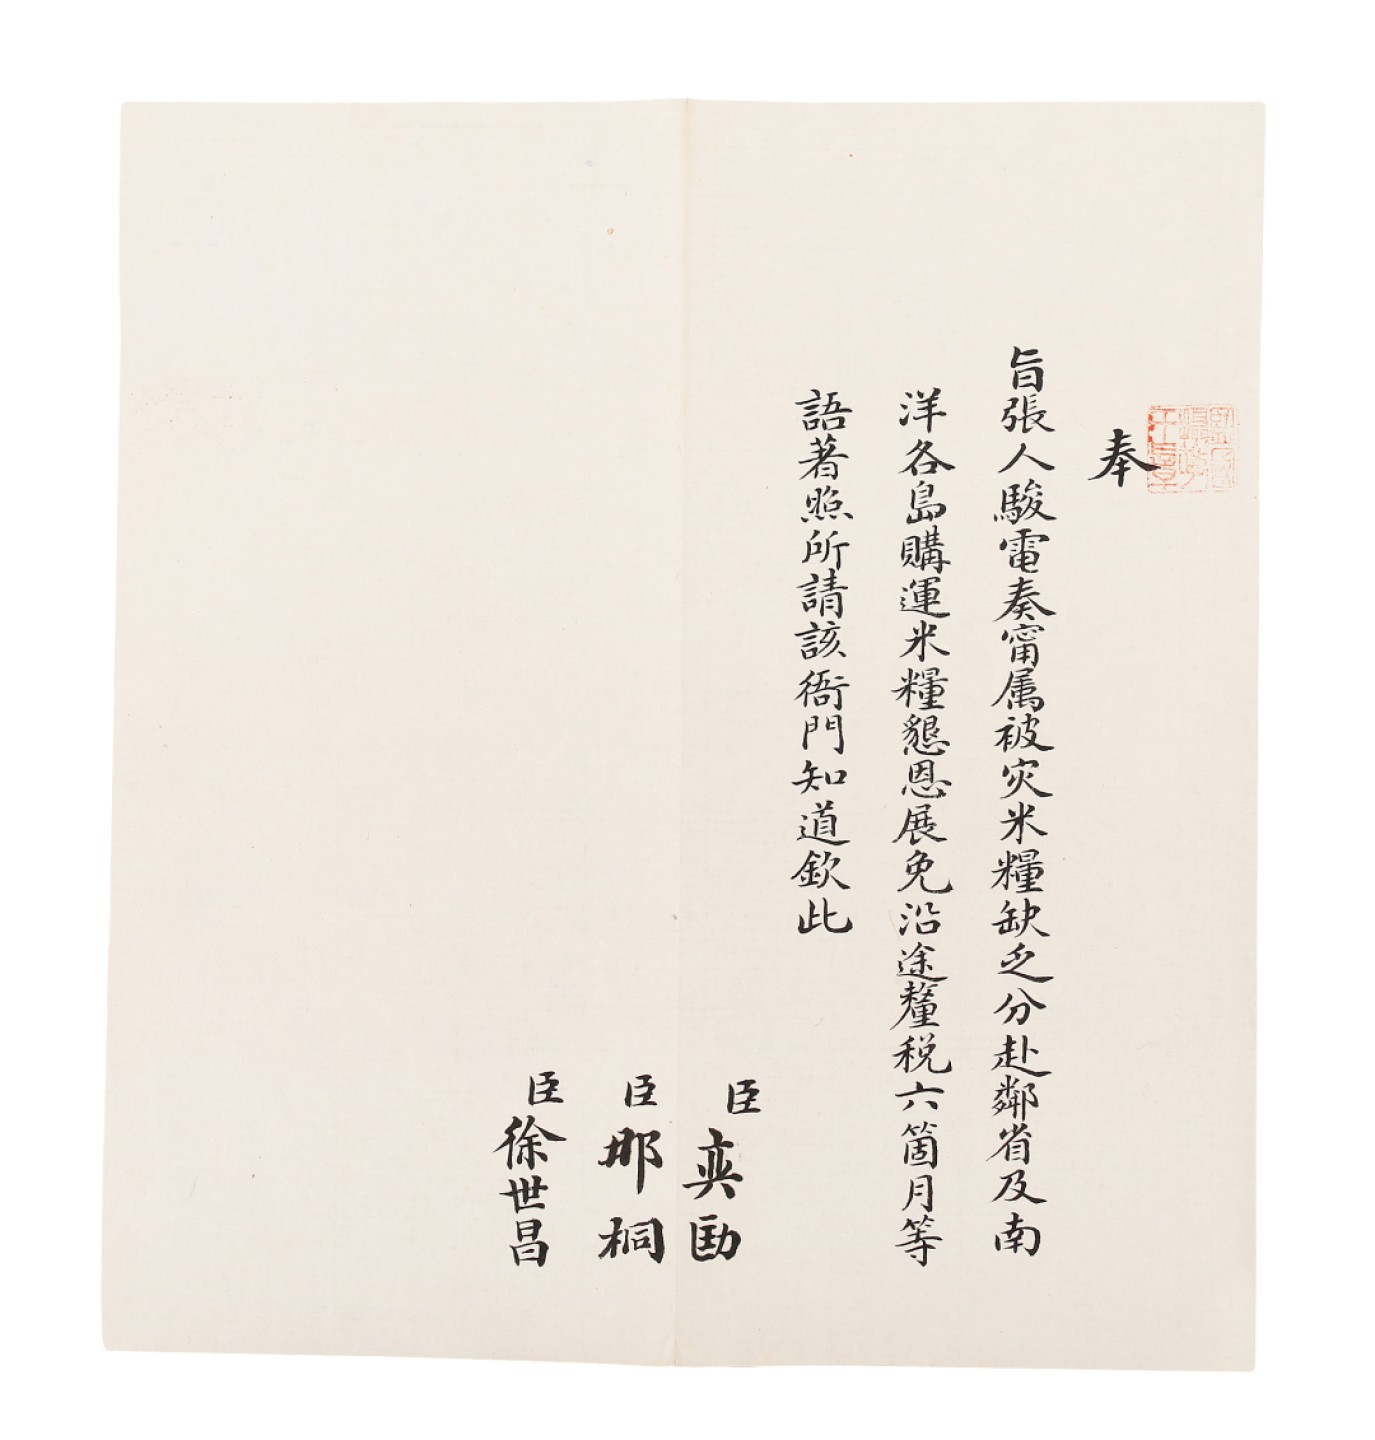 奉
旨張人駿電奏甯属被灾米糧缺乏分赴鄰省及南
洋各島購運米糧懇恩展免沿途釐税六箇月等
語著照所請該衙門知道欽此
臣奕劻
臣那桐
臣徐世昌